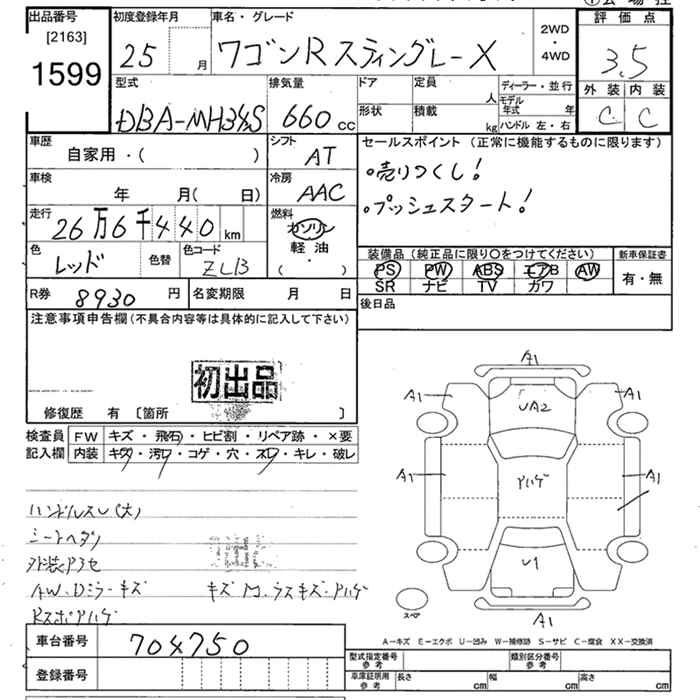 出品番号
[2163]
1599
初度登録年月
25 月
車名・グレード
ワゴンR スティングレーX
2WD
・
4WD
評価点
3.5
外装 内装
C C
型式
DBA-MH34S
排気量
660 cc
ドア
形状
定員 人
積載 kg
ディーラー・並行
モデル年式 年
ハンドル 左・右
車歴
自家用・( )
シフト
AT
車検
年 月( 日)
冷房
AAC
走行
26万6千440 km
燃料
ガソリン
軽油
( ・ )
色
レッド
色替
色コード
ZLB
R券 8930 円
名変期限 月 日
セールスポイント (正常に機能するものに限ります)
・売りつくし!
・プッシュスタート!
装備品(純正品に限り〇をつけてください)
PS PW ABS エアB AW
SR ナビ TV カワ
新車保証書
有・無
後日品
注意事項申告欄(不具合内容等は具体的に記入して下さい)
初出品
修復歴 有 〔箇所 〕
検査員記入欄
FW キズ・飛石・ヒビ割・リペア跡・×要
内装 キズ・汚レ・コゲ・穴・スレ・キレ・破レ
ハンドルスレ(大)
シートヘタリ
外装アセ
AW、Dミラーキズ
キズ
Rスポハゲ
A1
A1
A1
UA2
A1
A1
U1
A1
スペア
A-キズ E-エクボ U-凹み W-補修跡 S-サビ C-腐食 XX-交換済
車台番号 704750
登録番号
型式指定番号 参考
類別区分番号 参考
車庫証明用 参考
長さ cm
幅 cm
高さ cm